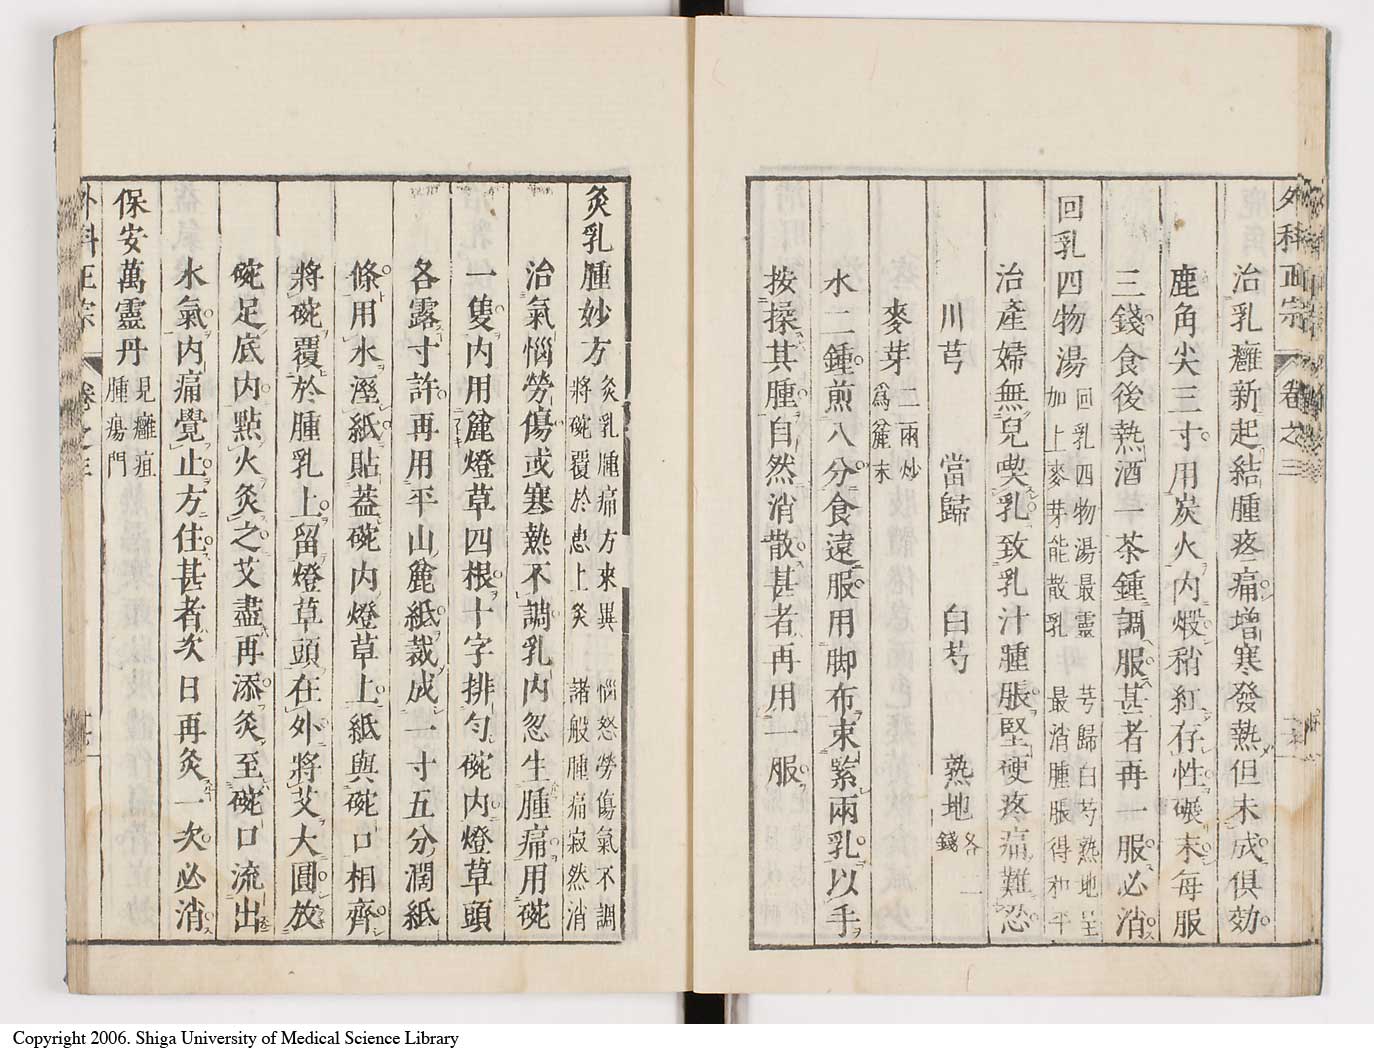 外科正宗 卷之三
治乳癰新起結腫疼痛增寒發熱但未成俱効
鹿角尖三寸用炭火內煅稍紅存性碾末每服
三錢食後熱酒一茶鍾調服甚者再一服必消
回乳四物湯
回乳四物湯最靈 芎歸白芍熟地呈
加上麥芽能散乳 最消腫脹得和平
治產婦無兒喫乳致乳汁腫脹堅硬疼痛難忍
川芎 當歸 白芍 熟地各一錢
麥芽二兩炒爲麄末
水二鍾煎八分食遠服用脚布束緊兩乳以手
按揉其腫自然消散甚者再用一服
灸乳腫妙方
灸乳腫痛方來異 惱怒勞傷氣不調
將碗覆於患上灸 諸般腫痛寂然消
治氣惱勞傷或寒熱不調乳內忽生腫痛用碗
一隻內用麄燈草四根十字排勻碗內燈草頭
各露寸許再用平山麄紙裁成一寸五分濶紙
條用水溼紙貼蓋碗內燈草上紙與碗口相齊
將碗覆於腫乳上留燈草頭在外將艾大圓放
碗足底內點火灸之艾盡再添灸至碗口流出
水氣內痛覺止方住甚者次日再灸一次必消
保安萬靈丹
見癰疽
腫瘍門
外科正宗 卷之三
Copyright 2006. Shiga University of Medical Science Library